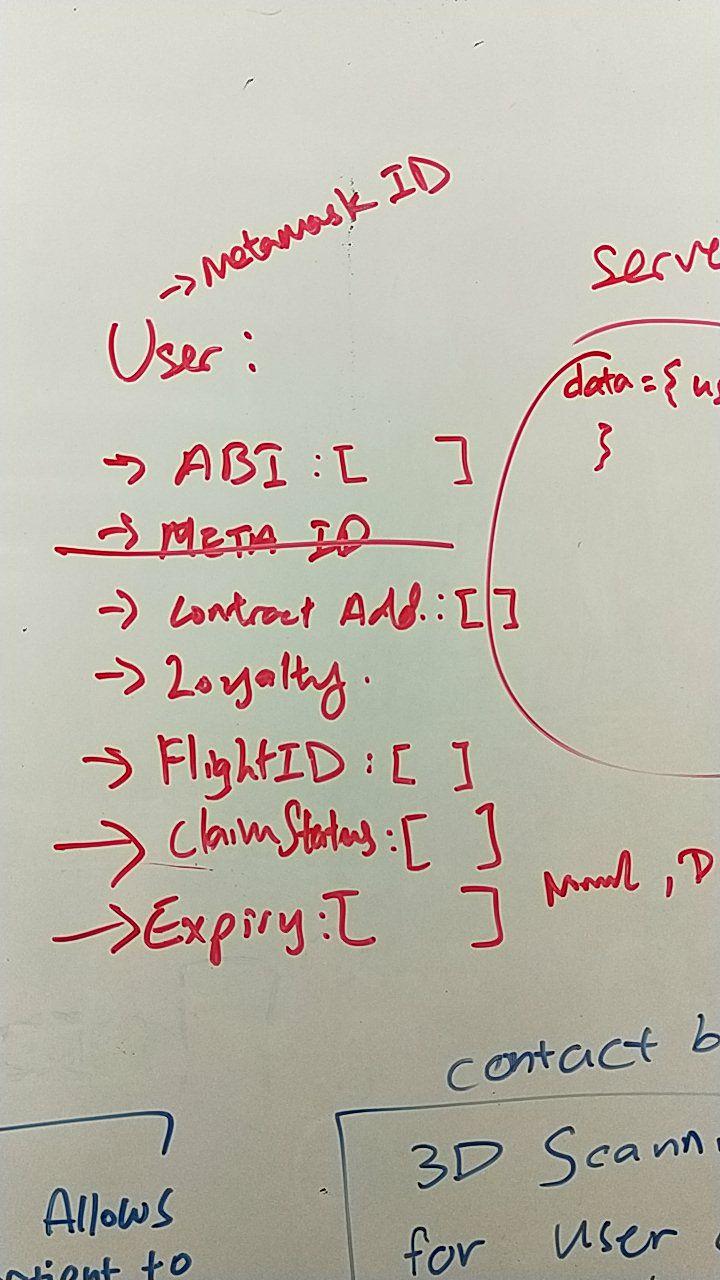 → Metamask ID
User:
→ ABI : [ ]
→ META ID
→ Contract Add. : [ ]
→ Loyalty.
→ FlightID : [ ]
→ ClaimStatus : [ ]
→ Expiry : [ ]
Serve
data = { us
}
, D
contact b
3D Scann
for user
Allows
to